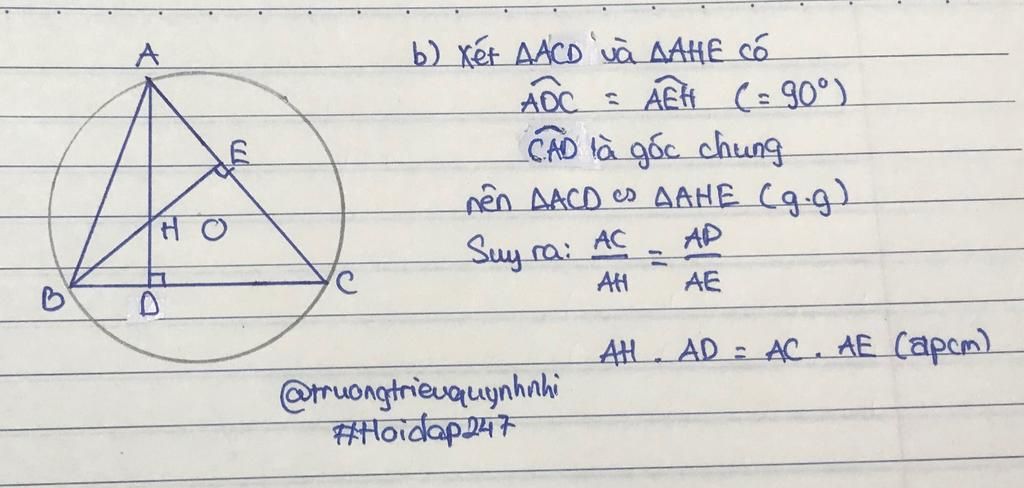 A
E
H O
B
D
C
b) Xét ΔACD và ΔAHE có
ADC = AEH (= 90°)
CAD là góc chung
nên ΔACD ∽ ΔAHE (g.g)
Suy ra: AC/AH = AD/AE
AH . AD = AC . AE (đpcm)
@truongtrieuquynhnhi
#Hoidap247